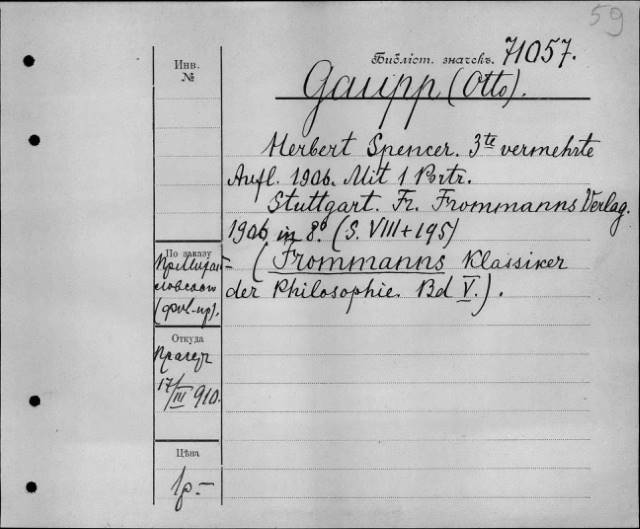 59
Библіот. значекъ. 71057.
Инв.
№
Gaupp (Otto).
Herbert Spencer. 3te vermehrte
Aufl. 1906. Mit 1 Portr.
Stuttgart. Fr. Frommanns Verlag.
1906, in 8º. (S. VIII+195)
(Frommanns Klassiker
der Philosophie. Bd V.).
По заказу
Откуда
17/III 910.
Цѣна
1р.-